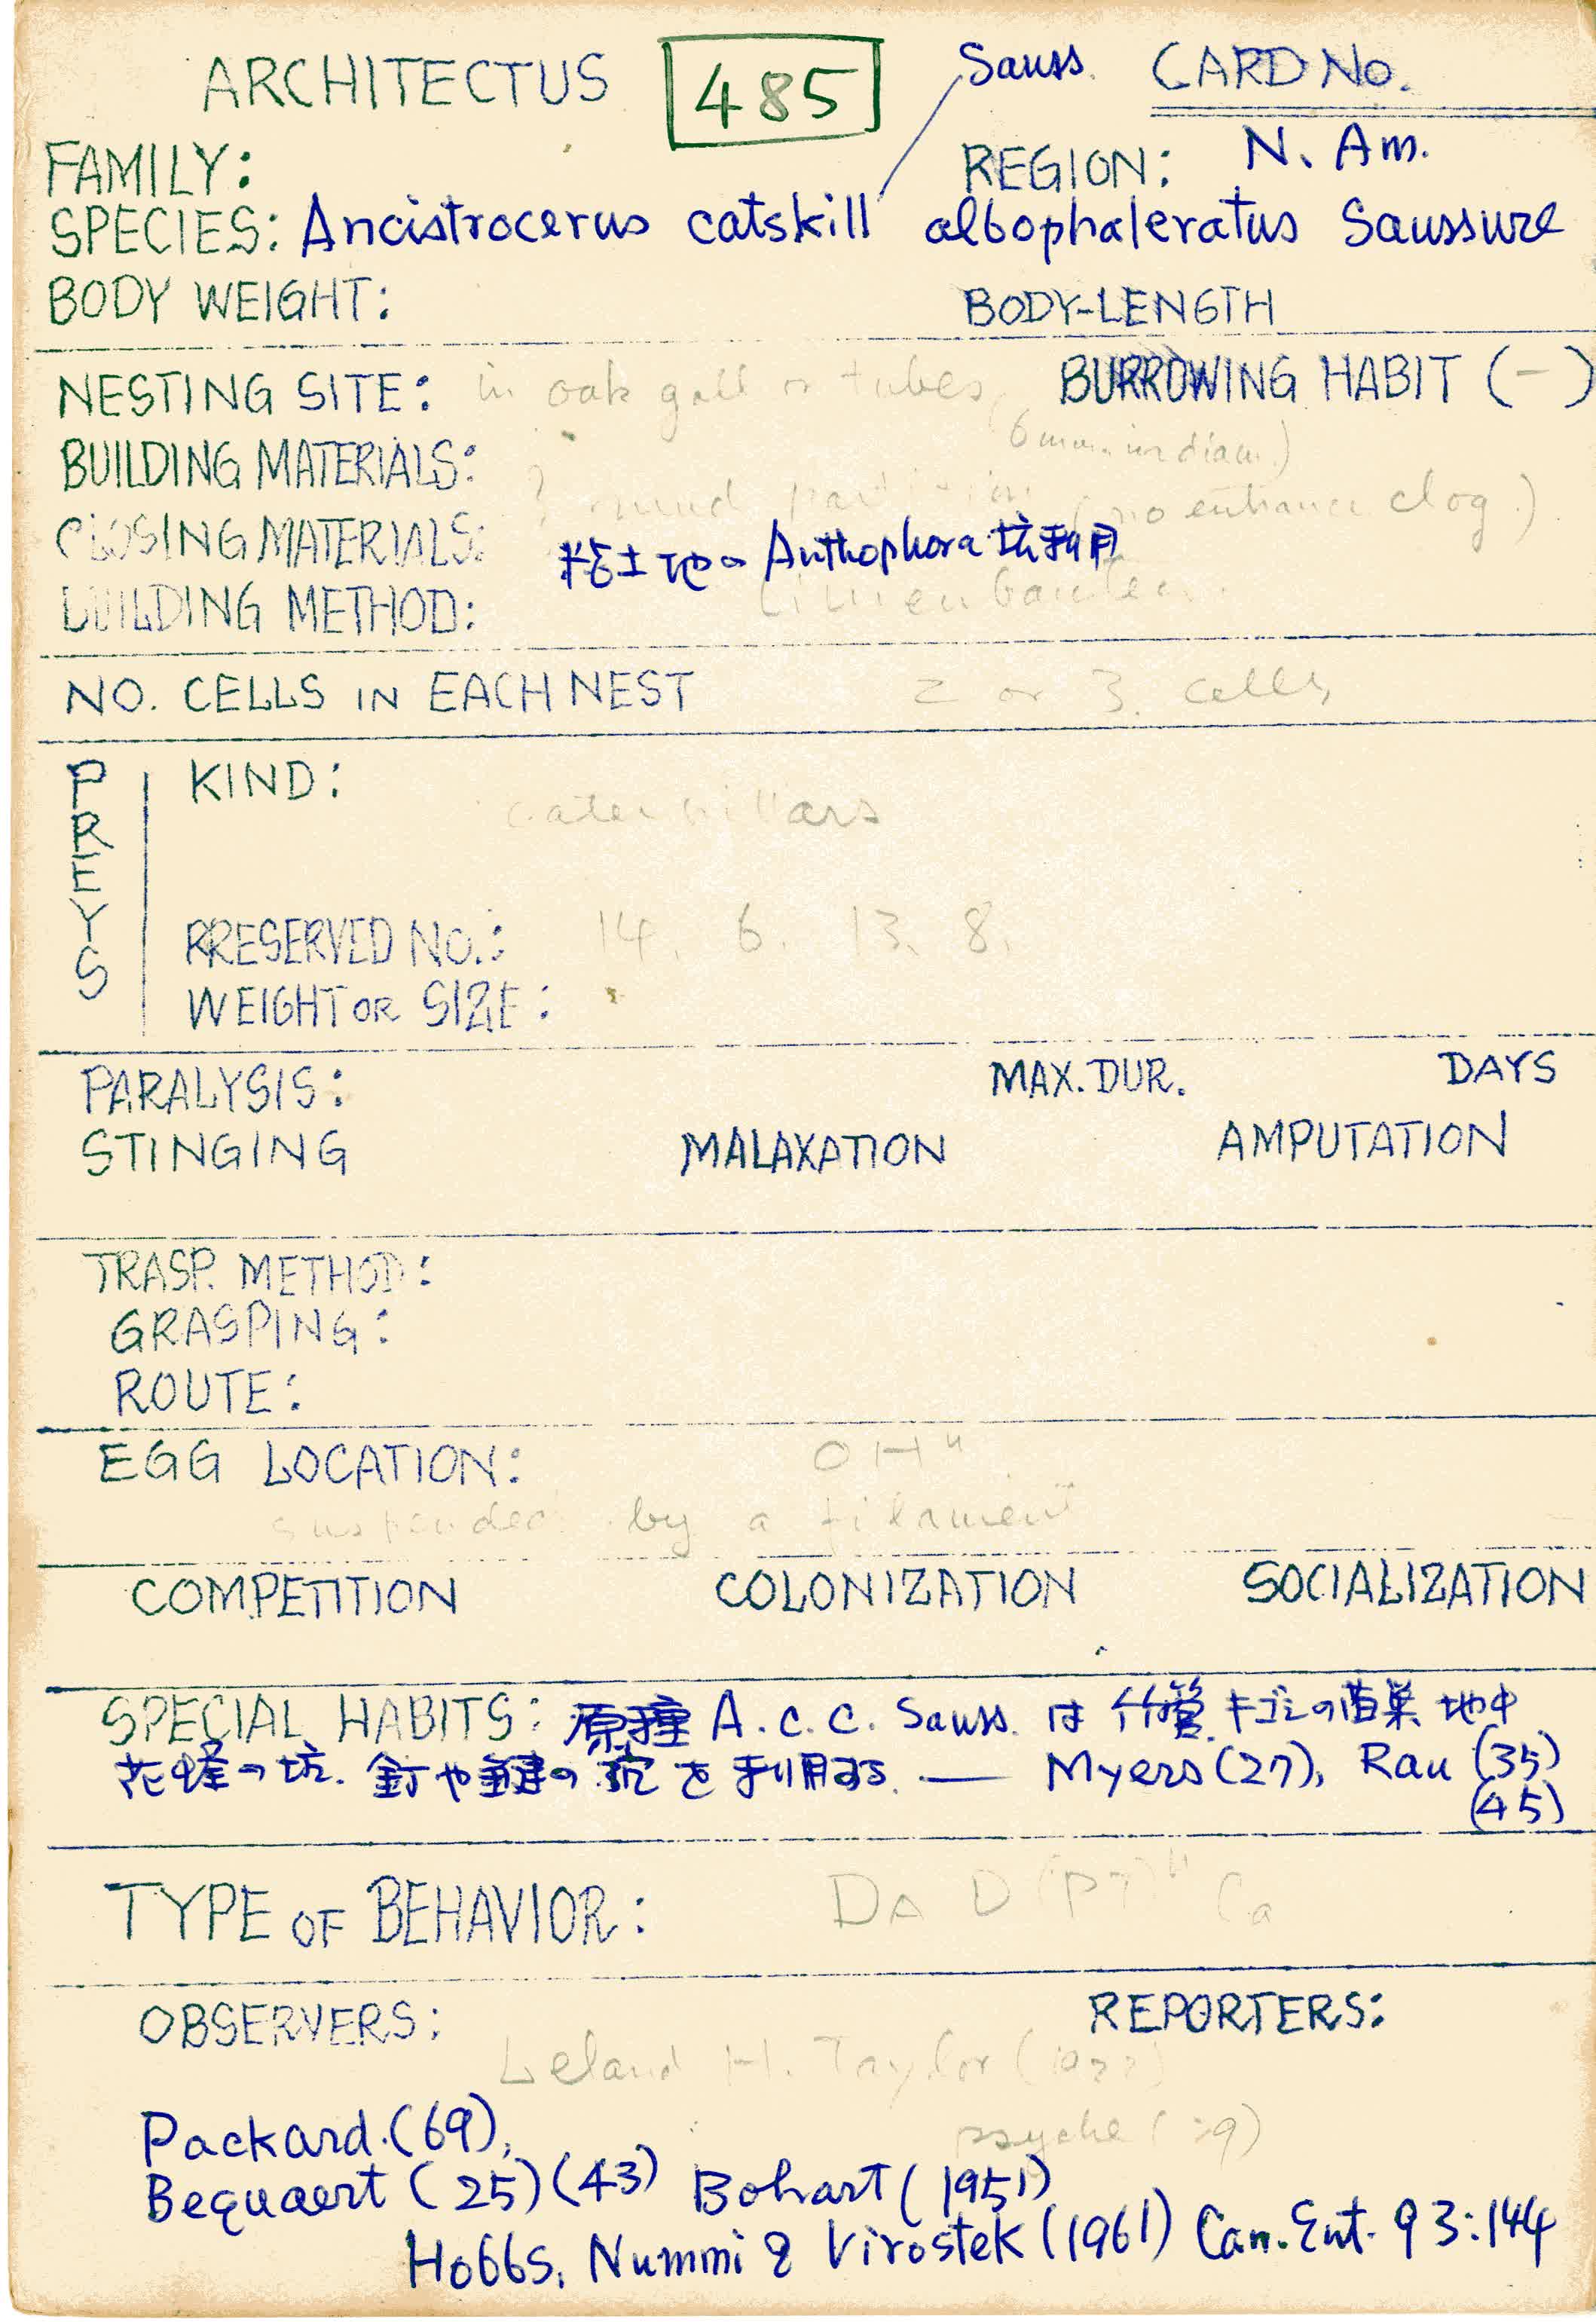 ARCHITECTUS 485 Sauss. CARD No.
FAMILY: REGION: N. Am.
SPECIES: Ancistrocerus catskill albophaleratus Saussure
BODY WEIGHT: BODY-LENGTH
NESTING SITE: in oak gall or tubes BURROWING HABIT (-)
(6 mm. in diam.)
BUILDING MATERIALS:
? mud partition (no entrance clog.)
CLOSING MATERIALS: 粘土地の Anthophora 坑利用
BUILDING METHOD:
NO. CELLS IN EACH NEST 2 or 3. cells
PREYS KIND:
caterpillars
PRESERVED NO.: 14. 6. 13. 8.
WEIGHT OR SIZE:
PARALYSIS: MAX. DUR. DAYS
STINGING MALAXATION AMPUTATION
TRASP. METHOD:
GRASPING:
ROUTE:
EGG LOCATION: OH"
suspended by a filament
COMPETITION COLONIZATION SOCIALIZATION
SPECIAL HABITS: 原種 A. c. c. Sauss. は 竹管 キゴシの旧巣 地中
花蜂の坑. 釘や鍵の穴を利用する. — Myers (27), Rau (35)
(45)
TYPE OF BEHAVIOR: DA D (PT)" Ca
OBSERVERS: REPORTERS:
Leland H. Taylor
psyche
Packard. (69),
Bequaert (25) (43) Bohart (1951)
Hobbs, Nummi & Virostek (1961) Can. Ent. 93:144